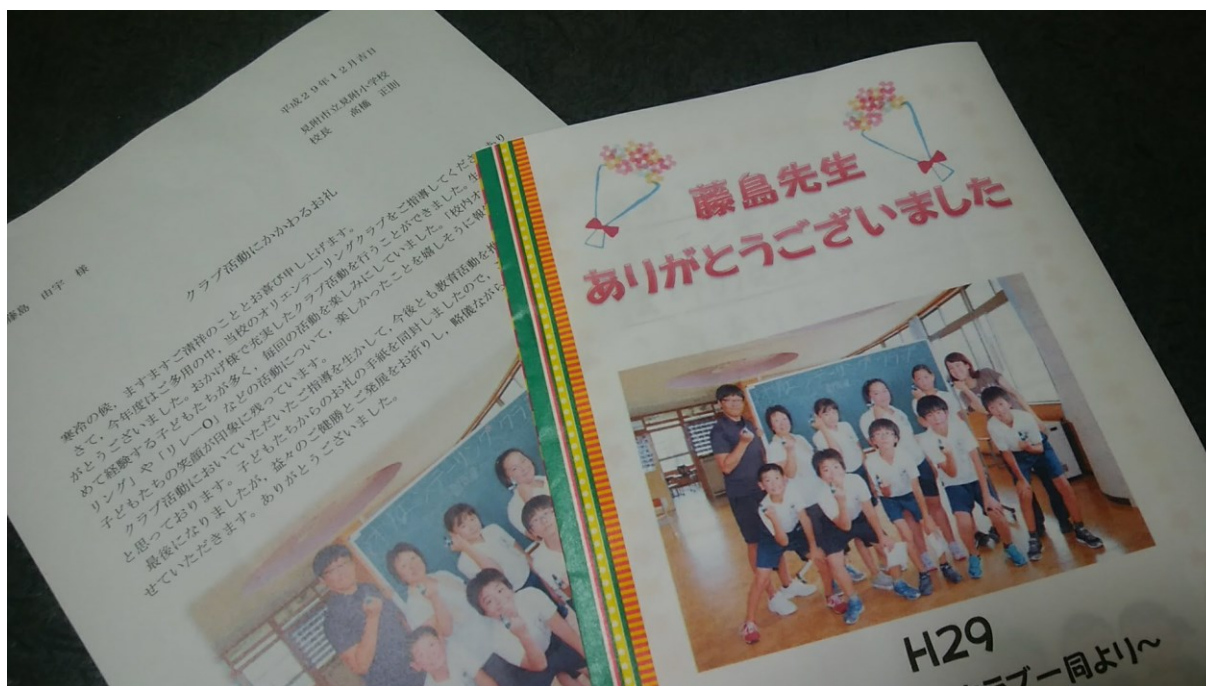 平成29年12月吉日
見附市立見附小学校
校長 高橋 正則
藤島 由宇 様
クラブ活動にかかわるお礼
寒冷の候，ますますご清祥のこととお喜び申し上げます。
さて，今年度はご多用の中，当校のオリエンテーリングクラブをご指導してくださり
がとうございました。おかげ様で充実したクラブ活動を行うことができました。
めて経験する子どもたちが多く，毎回の活動を楽しみにしていました。「校内オ
リング」や「リレーO」などの活動について，楽しかったことを嬉しそうに報
子どもたちの笑顔が印象に残っています。
クラブ活動においていただいたご指導を生かして，今後とも教育活動を
と思っております。子どもたちからのお礼の手紙を同封しましたので，
最後になりましたが，益々のご健勝とご発展をお祈りし，略儀ながら
せていただきます。ありがとうございました。
藤島先生
ありがとうございました
H29
ラブ一同より～